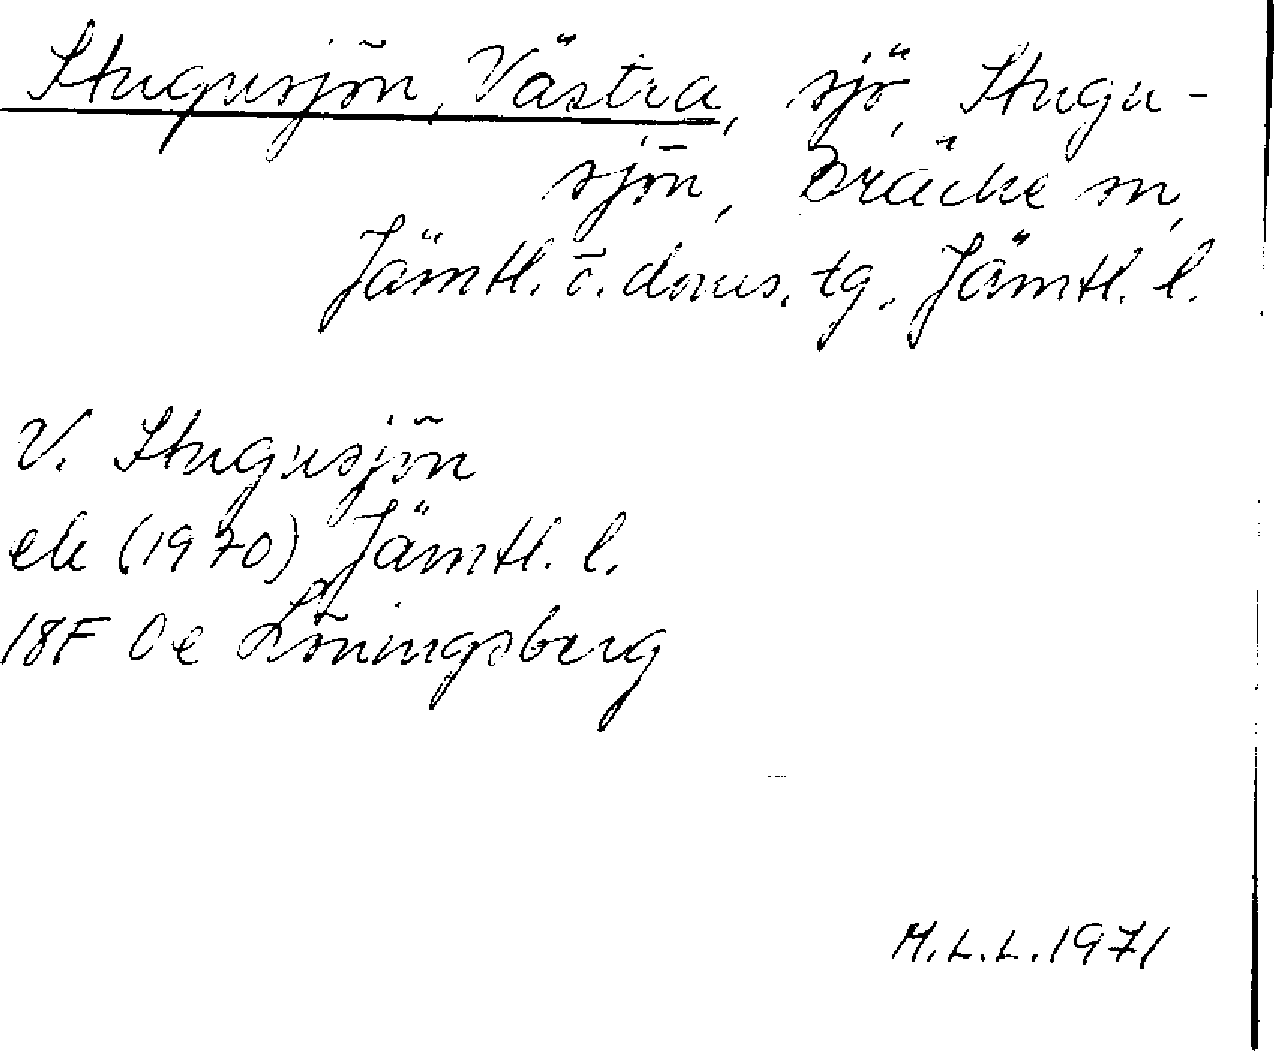 Stugusjön, Västra, sjö, Stugu-
sjön, Bräcke sn,
Jämtl. ö. doms. tg. Jämtl. l.
V. Stugusjön
ek (1970) Jämtl. l.
18F 0e Löningsberg
M.L.L. 1971